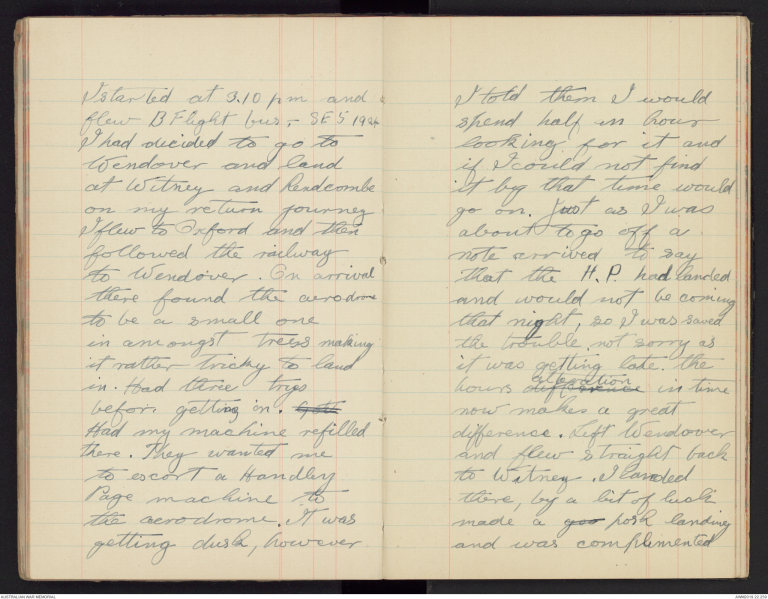 I started at 3.10 pm and
flew B Flight bus, - SE5 192
I had decided to go to
Wendover and land
at Witney and Rendcombe
on my return journey
I flew to Oxford and then
followed the railway
to Wendover. On arrival
there found the aerodrome
to be a small one
in amongst trees making
it rather tricky to land
in. Had three trys
befor getting in.
Had my machine refilled
there. They wanted me
to escort a Handley
Page machine to
the aerodrome. It was
getting dusk, however
I told them I would
spend half an hour
looking for it and
if I could not find
it by that time would
go on. Just as I was
about to go off a
note arrived to say
that the H.P. had landed
and would not be coming
that night, so I was saved
the trouble, not sorry as
it was getting late. the
alteration
hours difference in time
now makes a great
difference. Left Wendover
and flew straight back
to Witney. I landed
there, by a bit of luck
made a goo posh landing
and was complimented
AUSTRALIAN WAR MEMORIAL
AWM2019.22.259